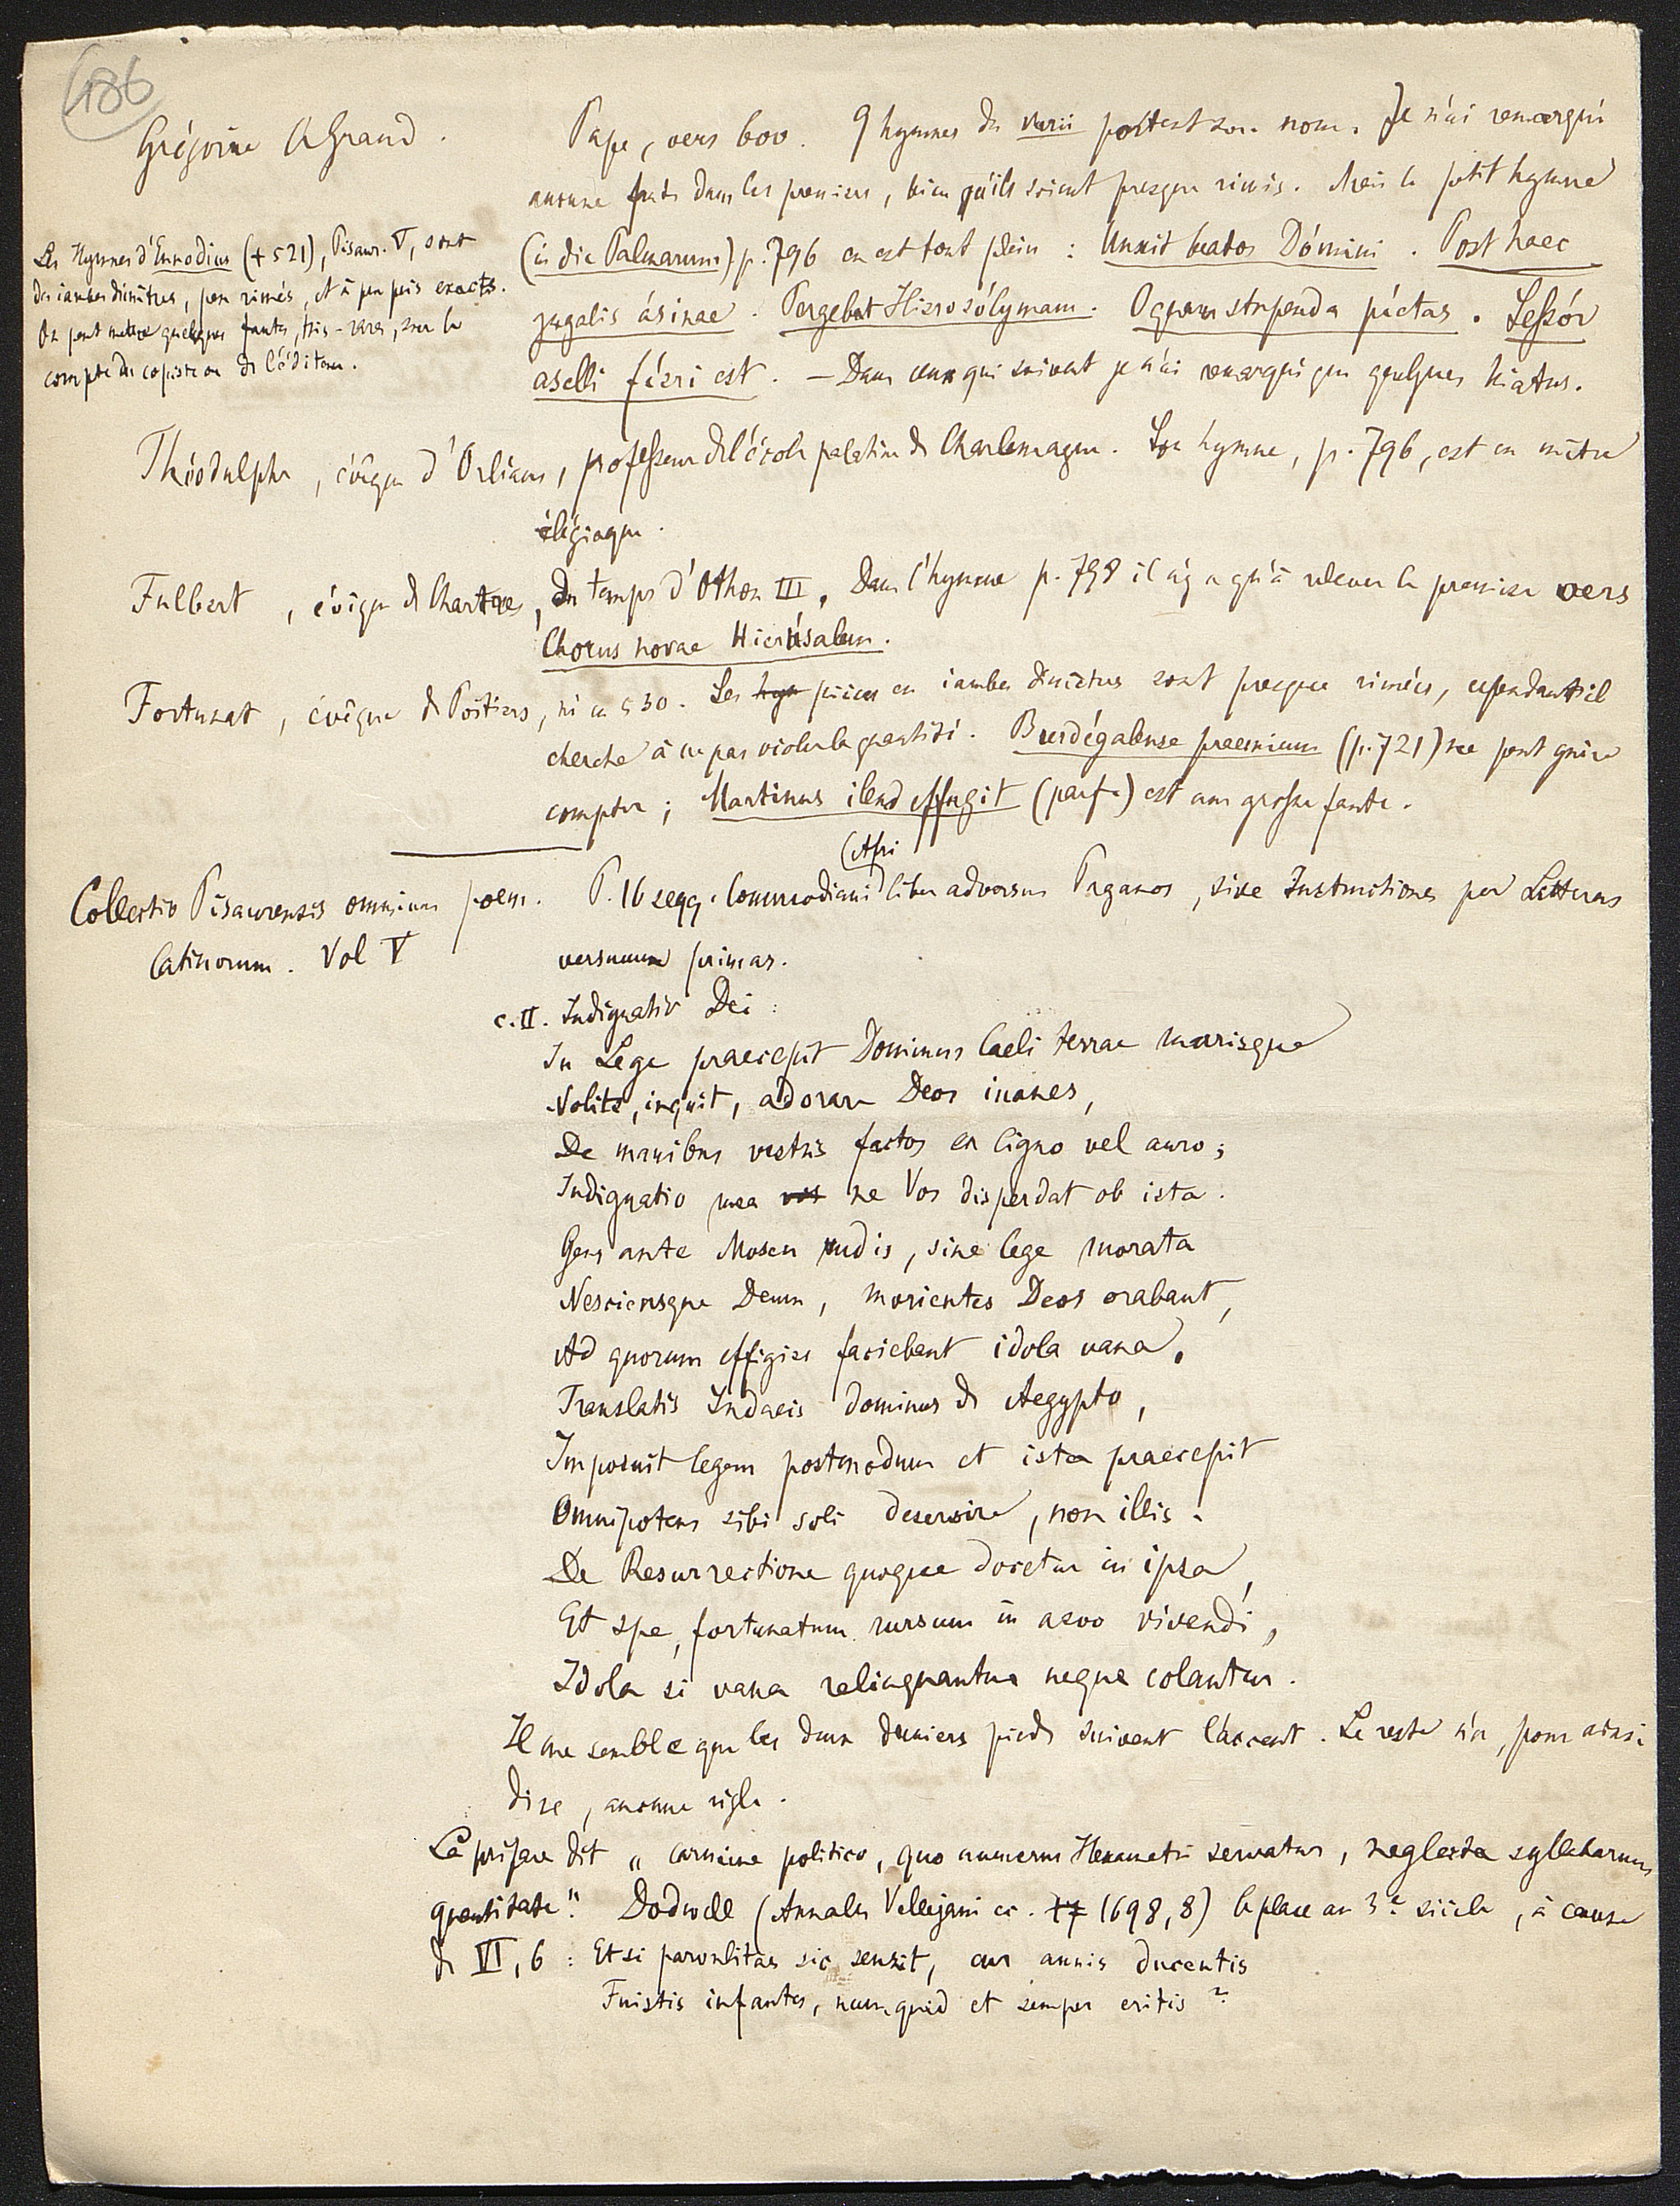 486
Grégoire le Grand. Pape, vers 600. 9 hymnes du varii portent son nom. Je n'ai remarqué
aucune faute dans les premiers, bien qu'ils soient presque rimés. Mais le petit hymne
(in die Palmarum) p. 796 en est tout plein : Unxit beatos Dómini. Post haec
jugalis ásinae. Pergebat Hierosólymam. O quam stupenda píetas. Seßór
aselli fíeri est. — Dans ceux qui suivent je n'ai remarqué que quelques hiatus.
Les Hymnes d'Ennodius (+ 521), Pisaur. V, sont
des iambes dimètres, peu rimés, et à peu près exacts.
On peut mettre quelques fautes, très-rares, sur le
compte du copiste ou de l'éditeur.
Théodulphe, évêque d'Orléans, profeßeur de l'école palatine de Charlemagne. Son hymne, p. 796, est en mètre
élégiaque.
Fulbert, évêque de Chartres, du temps d'Othon III. Dans l'hymne p. 798 il n'y a qu'à relever le premier vers
Chorus novae Hierúsalem.
Fortunat, évêque de Poitiers, né en 530. Les hyn pièces en iambes dimètres sont presque rimées, cependant il
cherche à ne pas violer la quantité. Burdégalense praemium (p. 721) ne peut guère
compter ; Martinus illud effugit (parf.) est une großse faute.
Collectio Pisaurensis omnium poem. P. 16 seqq. Commodiani (Afri) liber adversus Paganos, sive Instructiones per Litteras
Latinorum. Vol V versuum primas.
c. II. Indignatio Dei :
In Lege praecepit Dominus Caeli terrae marisque
Nolite, inquit, adorare Deos inanes,
De manibus vestris factos ex ligno vel auro ;
Indignatio mea vos ne Vos disperdat ob ista.
Gens ante Mosen rudis, sine lege morata
Nesciensque Deum, morientes Deos orabant,
Ad quorum effigies faciebant idola vana.
Translatis Judaeis Dominus de Aegypto,
Imposuit legem postmodum et ista praecepit
Omnipotens sibi soli deservire, non illis.
De Resurrectione quoque docetur in ipsa,
Et spe, fortunatum rursum in aevo vivendi,
Idola si vana relinquantur neque colantur.
Il me semble que les deux derniers pieds suivent l'accent. Le reste n'a, pour ainsi
dire, aucune règle.
La préface dit „ carmine politico, quo numerus Hexametri servatur, neglecta syllabarum
quantitate". Dodwell (Annales Vellejani etc. 17 1698, 8) le place au 3e siècle, à cause
de VI, 6 : Et si parvulitas sic sensit, cur annis ducentis
Fuistis infantes, numquid et semper eritis ?